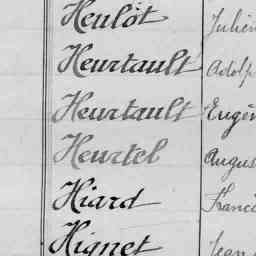 Heulot Julien
Heurtault Adolp
Heurtault Eugèn
Heurtel Augus
Hiard Franc
Hignet Jean